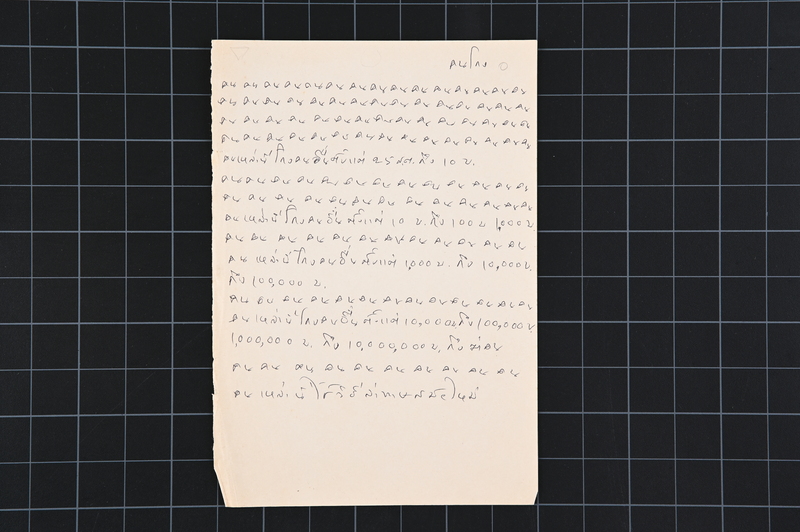 คนโกง
คน คน คน คน คน คน คน คน คน คน คน คน คน คน คน
คน คน คน คน คน คน คน คน คน คน คน คน คน คน
คน คน คน คน คน คน คน คน คน คน คน คน คน คน คน
คน คน คน คน คน คน คน คน คน คน คน คน คน คน
คนเหล่านี้โกงคนอื่นตั้งแต่ ๒๕ สต. ถึง 10 บ.
คน คน คน คน คน คน คน คน คน คน คน คน คน
คน คน คน คน คน คน คน คน คน คน คน คน คน
คน เหล่านี้โกงคนอื่นตั้งแต่ 10 บ. ถึง 100 บ 1,000 บ.
คน คน คน คน คน คน คน คน คน คน คน คน
คน เหล่านี้โกงคนอื่นตั้งแต่ 1,000 บ. ถึง 10,000 บ.
ถึง 100,000 บ.
คน คน คน คน คน คน คน คน คน คน คน คน คน
คน เหล่านี้โกงคนอื่นตั้งแต่ 10,000 บ ถึง 100,000 บ.
1,000,000 บ. ถึง 10,000,000 บ. ถึง ฆ่าคน
คน คน คน คน คน คน คน คน คน คน
คน เหล่านี้ ใช้วิธีล่าทาสสมัยใหม่